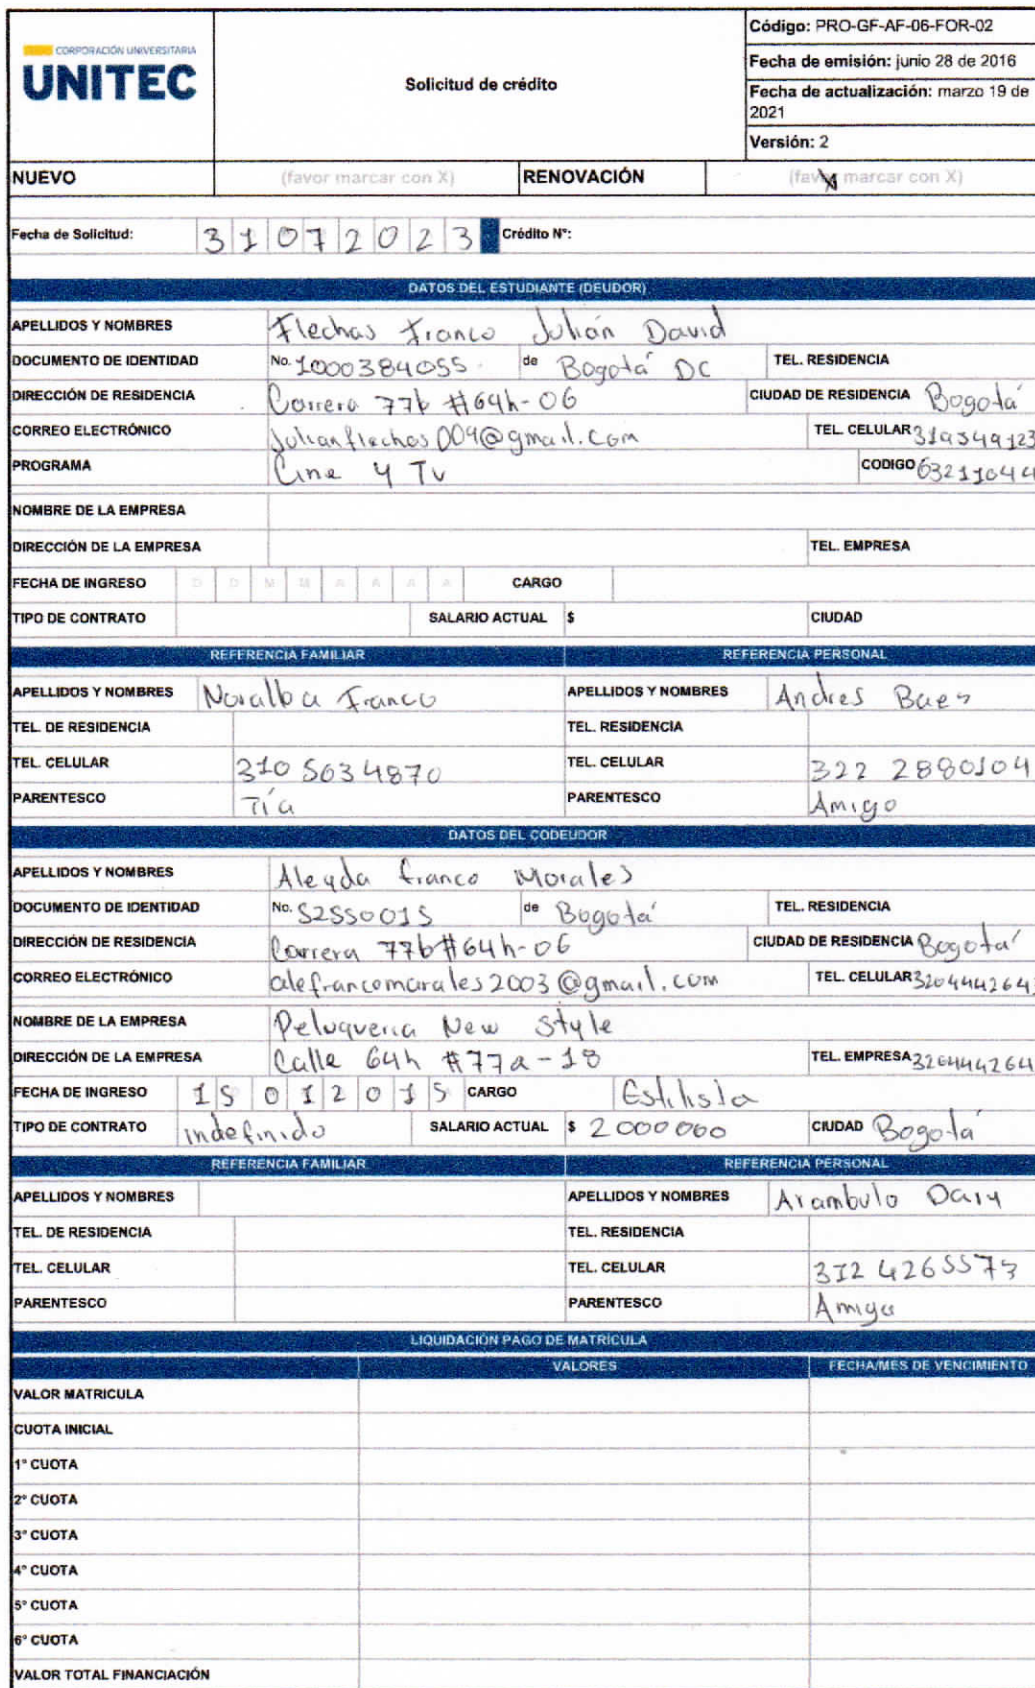 CORPORACIÓN UNIVERSITARIA
UNITEC
Solicitud de crédito
Código: PRO-GF-AF-06-FOR-02
Fecha de emisión: junio 28 de 2016
Fecha de actualización: marzo 19 de 2021
Versión: 2
NUEVO (favor marcar con X) RENOVACIÓN (favor marcar con X) X
Fecha de Solicitud: 3 1 0 7 2 0 2 3 Crédito N°:
DATOS DEL ESTUDIANTE (DEUDOR)
APELLIDOS Y NOMBRES Flechas Franco Julián David
DOCUMENTO DE IDENTIDAD No. 1000384055 de Bogotá DC TEL. RESIDENCIA
DIRECCIÓN DE RESIDENCIA Carrera 77b #64h-06 CIUDAD DE RESIDENCIA Bogotá
CORREO ELECTRÓNICO julianflechas009@gmail.com TEL. CELULAR
PROGRAMA Cine y Tv CODIGO 63211044
NOMBRE DE LA EMPRESA
DIRECCIÓN DE LA EMPRESA TEL. EMPRESA
FECHA DE INGRESO D D M M A A A A CARGO
TIPO DE CONTRATO SALARIO ACTUAL $ CIUDAD
REFERENCIA FAMILIAR REFERENCIA PERSONAL
APELLIDOS Y NOMBRES Noralba Franco APELLIDOS Y NOMBRES Andres Baez
TEL. DE RESIDENCIA TEL. RESIDENCIA
TEL. CELULAR 310 5634870 TEL. CELULAR 322 2880104
PARENTESCO Tía PARENTESCO Amigo
DATOS DEL CODEUDOR
APELLIDOS Y NOMBRES Aleyda franco Morales
DOCUMENTO DE IDENTIDAD No. 52550015 de Bogotá TEL. RESIDENCIA
DIRECCIÓN DE RESIDENCIA Carrera 77b #64h-06 CIUDAD DE RESIDENCIA Bogotá
CORREO ELECTRÓNICO alefrancomorales2003@gmail.com TEL. CELULAR
NOMBRE DE LA EMPRESA Peluqueria New Style
DIRECCIÓN DE LA EMPRESA Calle 64h #77a-18 TEL. EMPRESA
FECHA DE INGRESO 1 5 0 1 2 0 1 5 CARGO Estilista
TIPO DE CONTRATO indefinido SALARIO ACTUAL $ 2000000 CIUDAD Bogotá
REFERENCIA FAMILIAR REFERENCIA PERSONAL
APELLIDOS Y NOMBRES APELLIDOS Y NOMBRES Arambulo Dary
TEL. DE RESIDENCIA TEL. RESIDENCIA
TEL. CELULAR TEL. CELULAR 312 4265573
PARENTESCO PARENTESCO Amiga
LIQUIDACIÓN PAGO DE MATRICULA
VALORES FECHA/MES DE VENCIMIENTO
VALOR MATRICULA
CUOTA INICIAL
1° CUOTA
2° CUOTA
3° CUOTA
4° CUOTA
5° CUOTA
6° CUOTA
VALOR TOTAL FINANCIACIÓN